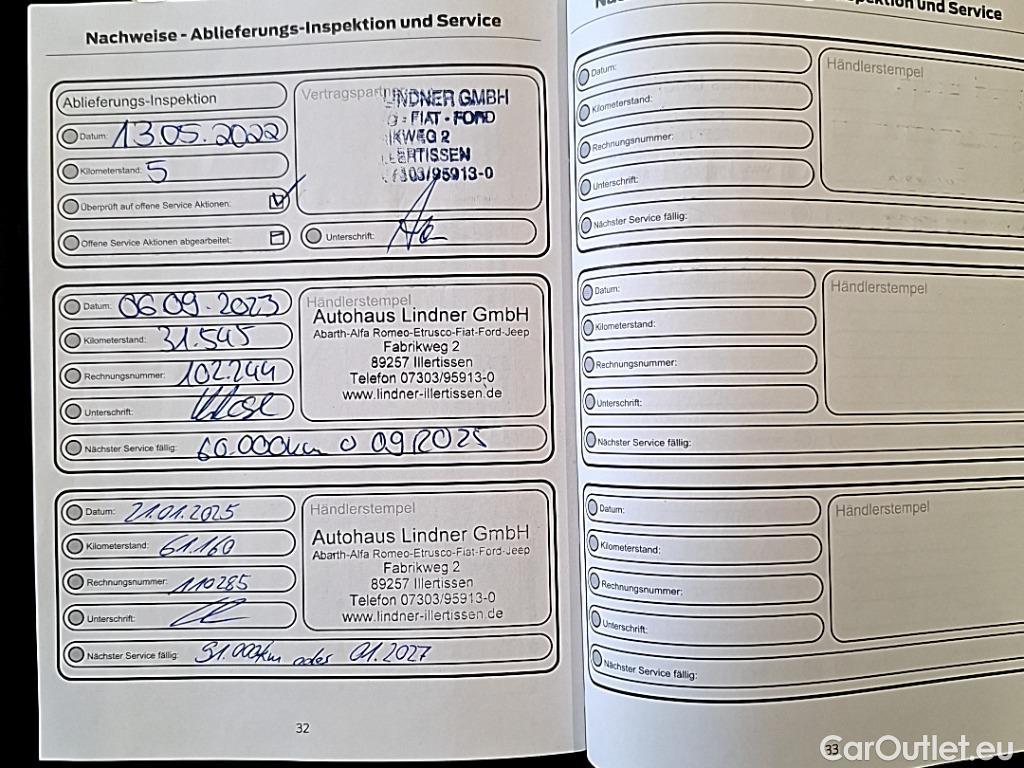 Nachweise - Ablieferungs-Inspektion und Service
Ablieferungs-Inspektion
Datum: 13.05.2022
Kilometerstand: 5
Überprüft auf offene Service Aktionen:
Offene Service Aktionen abgearbeitet:
Vertragspartn
LINDNER GMBH
- FIAT - FORD
KWEG 2
ERTISSEN
303/95913-0
Unterschrift:
Datum: 06.09.2023
Kilometerstand: 31.545
Rechnungsnummer: 102.244
Unterschrift:
Händlerstempel
Autohaus Lindner GmbH
Abarth-Alfa Romeo-Etrusco-Fiat-Ford-Jeep
Fabrikweg 2
89257 Illertissen
Telefon 07303/95913-0
www.lindner-illertissen.de
Nächster Service fällig: 60.000km o 09/2025
Datum: 21.01.2025
Kilometerstand: 61.160
Rechnungsnummer: 110285
Unterschrift:
Händlerstempel
Autohaus Lindner GmbH
Abarth-Alfa Romeo-Etrusco-Fiat-Ford-Jeep
Fabrikweg 2
89257 Illertissen
Telefon 07303/95913-0
www.lindner-illertissen.de
Nächster Service fällig: 91.000km oder 01.2027
32
und Service
Datum:
Kilometerstand:
Rechnungsnummer:
Unterschrift:
Nächster Service fällig:
Händlerstempel
Datum:
Kilometerstand:
Rechnungsnummer:
Unterschrift:
Nächster Service fällig:
Händlerstempel
Datum:
Kilometerstand:
Rechnungsnummer:
Unterschrift:
Nächster Service fällig:
Händlerstempel
33
CarOutlet.eu